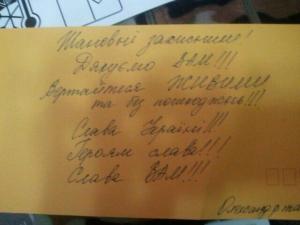 Шановні захисники!
Дякуємо ВАМ!!!
Вертайтеся живими
та без пошкоджень!!!
Слава Україні!!!
Героям слава!!!
Слава ВАМ!!!
Олександр та